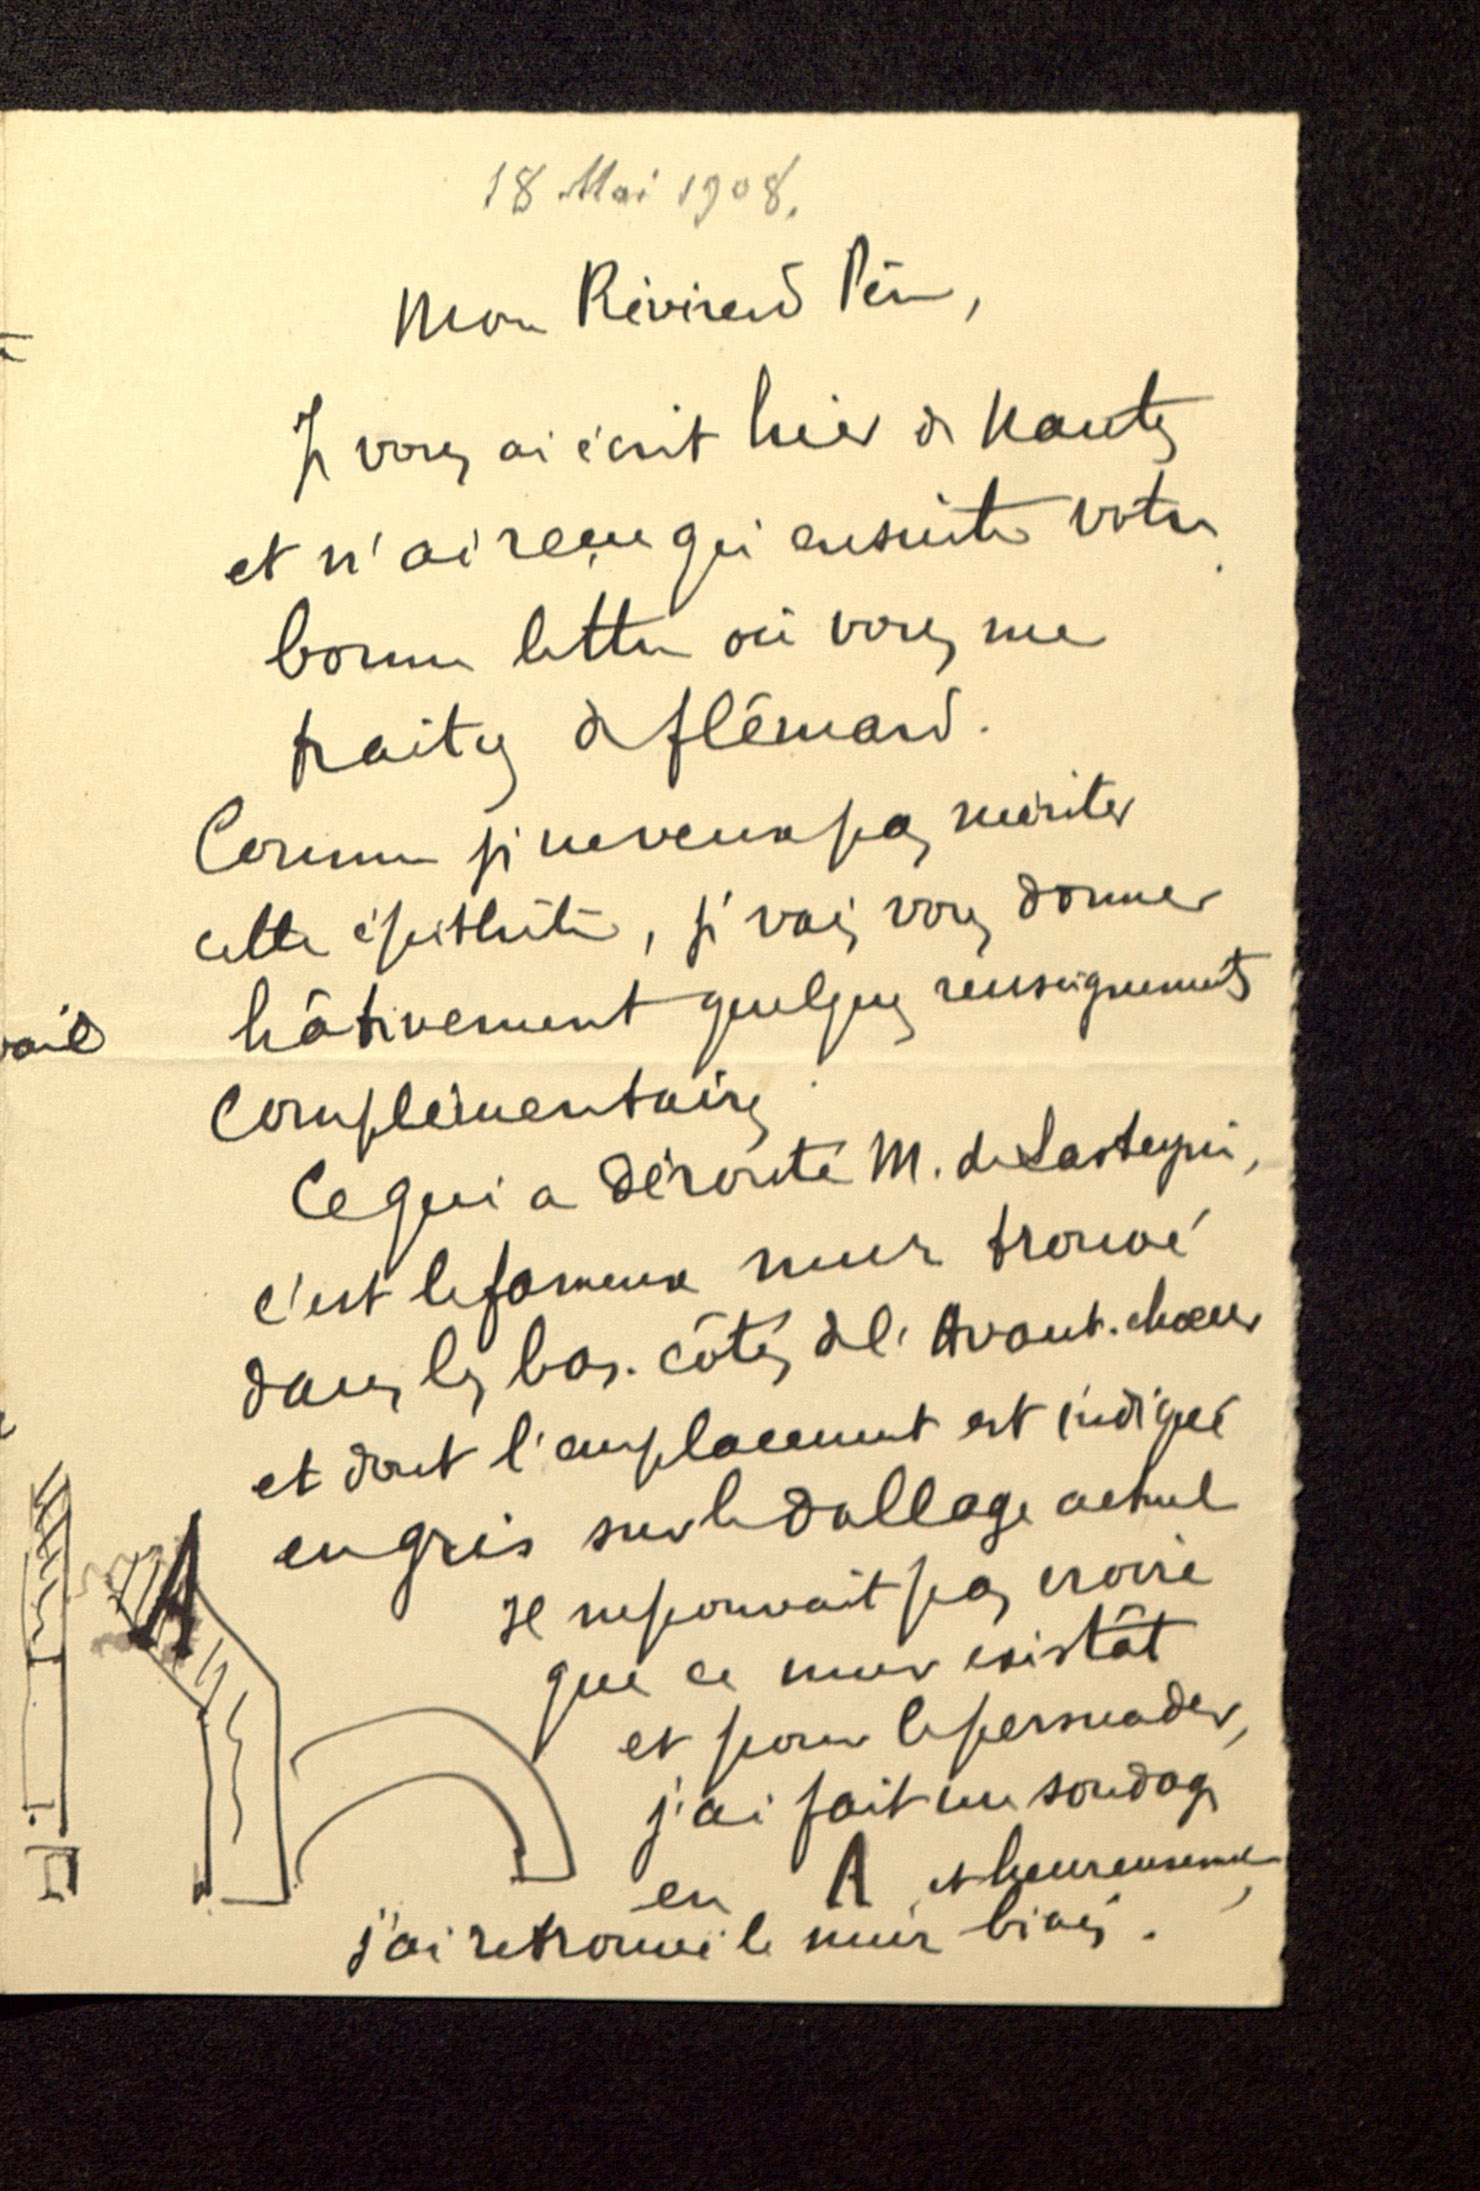 18 Mai 1908.
Mon Révérend Père,
Je vous ai écrit hier de Nantes
et n'ai reçu qui ensuite votre
bonne lettre où vous me
traitez de flémard.
Comme je ne veux pas mériter
cette épithète, je vais vous donner
hâtivement quelques renseignements
complémentaires.
Ce qui a dérouté M. de Lasteyrie,
c'est le fameux mur trouvé
dans les bas-côtés de l'Avant-chœur
et dont l'emplacement est indiqué
en gris sur le dallage actuel
Il ne pouvait pas croire
que ce mur existât
et pour le persuader,
j'ai fait un sondage
en A et heureusement,
j'ai retrouvé le mur biais.
A